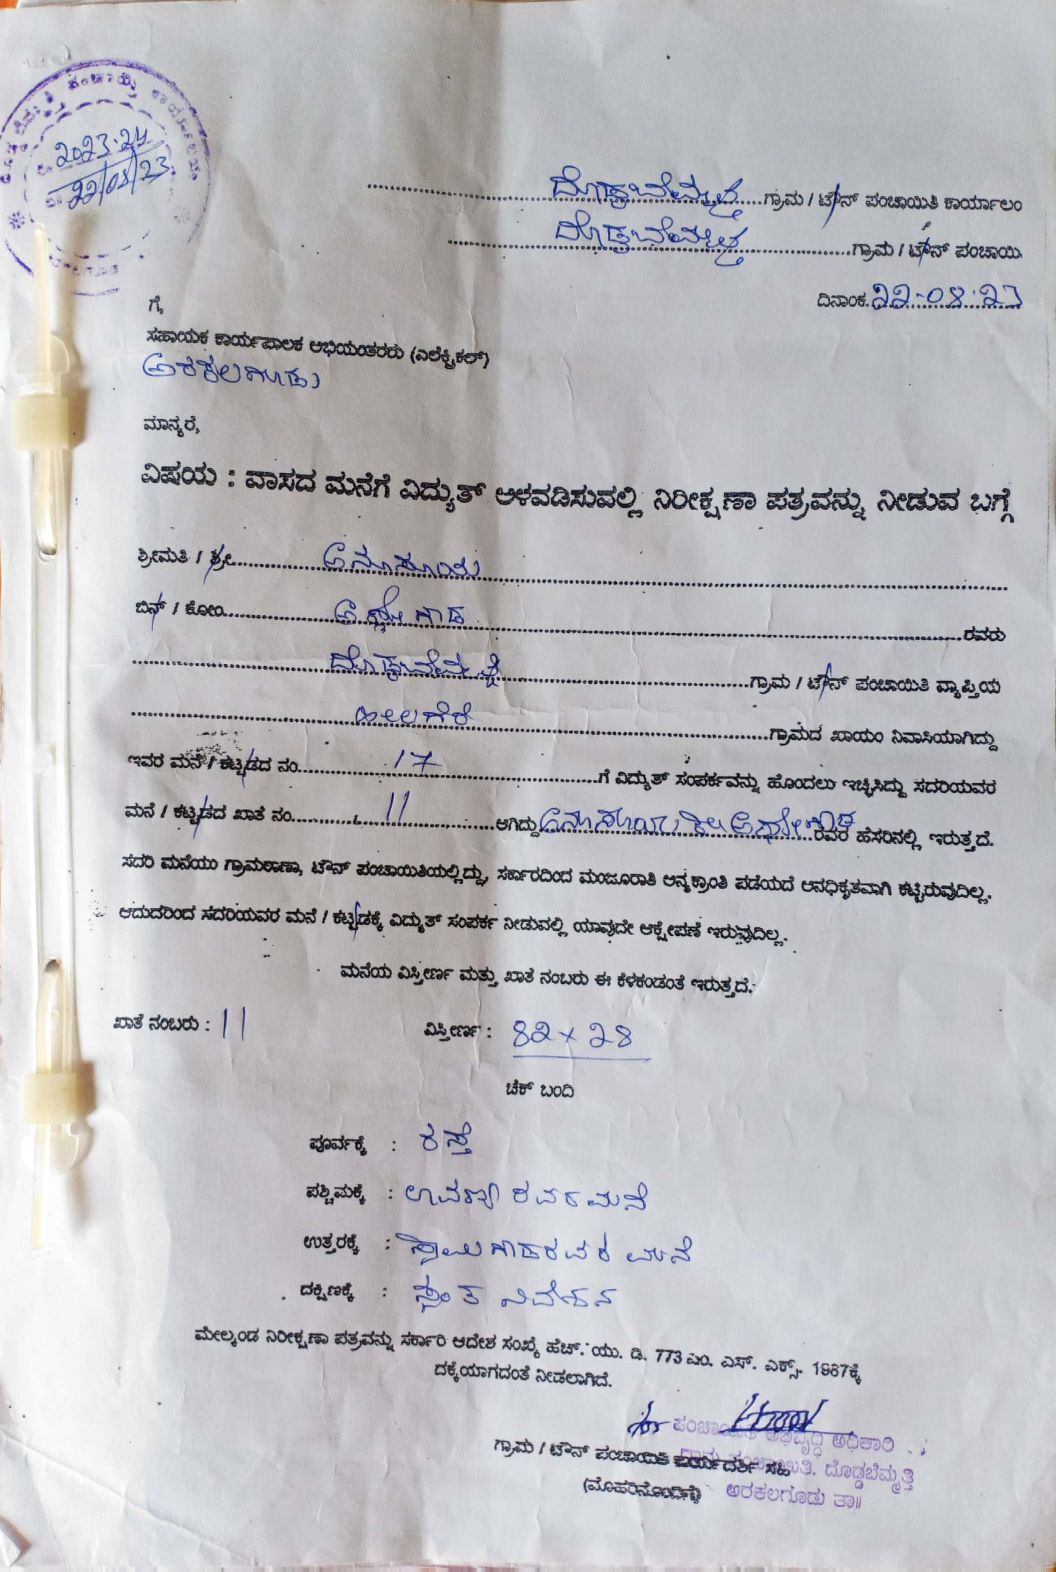 ಪಂಚಾಯ್ತಿ ಕಾರ್ಯಾಲಯ
2023-24
22/08/23
ದೊಡ್ಡಬೆಮ್ಮತ್ತಿ ಗ್ರಾಮ / ಟೌನ್ ಪಂಚಾಯಿತಿ ಕಾರ್ಯಾಲಂ
ದೊಡ್ಡಬೆಮ್ಮತ್ತಿ ಗ್ರಾಮ / ಟೌನ್ ಪಂಚಾಯಿ
ದಿನಾಂಕ. 22-08-23
ಗೆ,
ಸಹಾಯಕ ಕಾರ್ಯಪಾಲಕ ಅಭಿಯಂತರರು (ಎಲೆಕ್ಟ್ರಿಕಲ್)
ಅರಕಲಗೂಡು
ಮಾನ್ಯರೆ,
ವಿಷಯ : ವಾಸದ ಮನೆಗೆ ವಿದ್ಯುತ್ ಅಳವಡಿಸುವಲ್ಲಿ ನಿರೀಕ್ಷಣಾ ಪತ್ರವನ್ನು ನೀಡುವ ಬಗ್ಗೆ
ಶ್ರೀಮತಿ / ಶ್ರೀ ಅನುಸೂಯ
ಬಿನ್ / ಕೋಂ ರವರು
ದೊಡ್ಡಬೆಮ್ಮತ್ತಿ ಗ್ರಾಮ / ಟೌನ್ ಪಂಚಾಯಿತಿ ವ್ಯಾಪ್ತಿಯ
ಹುಲಗೆರೆ ಗ್ರಾಮದ ಖಾಯಂ ನಿವಾಸಿಯಾಗಿದ್ದು
ಇವರ ಮನೆ / ಕಟ್ಟಡದ ನಂ. 17 ಗೆ ವಿದ್ಯುತ್ ಸಂಪರ್ಕವನ್ನು ಹೊಂದಲು ಇಚ್ಛಿಸಿದ್ದು ಸದರಿಯವರ
ಮನೆ / ಕಟ್ಟಡದ ಖಾತೆ ನಂ. 11 ಆಗಿದ್ದು ಅನುಸೂಯ ರವರ ಹೆಸರಿನಲ್ಲಿ ಇರುತ್ತದೆ.
ಸದರಿ ಮನೆಯು ಗ್ರಾಮಠಾಣಾ, ಟೌನ್ ಪಂಚಾಯಿತಿಯಲ್ಲಿದ್ದು, ಸರ್ಕಾರದಿಂದ ಮಂಜೂರಾತಿ ಅನ್ಯಕ್ರಾಂತಿ ಪಡೆಯದೆ ಅನಧಿಕೃತವಾಗಿ ಕಟ್ಟಿರುವುದಿಲ್ಲ.
ಆದುದರಿಂದ ಸದರಿಯವರ ಮನೆ / ಕಟ್ಟಡಕ್ಕೆ ವಿದ್ಯುತ್ ಸಂಪರ್ಕ ನೀಡುವಲ್ಲಿ ಯಾವುದೇ ಆಕ್ಷೇಪಣೆ ಇರುವುದಿಲ್ಲ.
ಮನೆಯ ವಿಸ್ತೀರ್ಣ ಮತ್ತು ಖಾತೆ ನಂಬರು ಈ ಕೆಳಕಂಡಂತೆ ಇರುತ್ತದೆ.
ಖಾತೆ ನಂಬರು : 11 ವಿಸ್ತೀರ್ಣ : 82 x 28
ಚೆಕ್ ಬಂದಿ
ಪೂರ್ವಕ್ಕೆ : ರಸ್ತೆ
ಪಶ್ಚಿಮಕ್ಕೆ : ರವರ ಮನೆ
ಉತ್ತರಕ್ಕೆ : ಸ್ವಾಮಿಗೌಡರವರ ಮನೆ
ದಕ್ಷಿಣಕ್ಕೆ : ಸ್ವಂತ ನಿವೇಶನ
ಮೇಲ್ಕಂಡ ನಿರೀಕ್ಷಣಾ ಪತ್ರವನ್ನು ಸರ್ಕಾರಿ ಆದೇಶ ಸಂಖ್ಯೆ ಹೆಚ್. ಯು. ಡಿ. 773 ಎಂ. ಎಸ್. ಎಕ್ಸ್. 1987ಕ್ಕೆ
ದಕ್ಕೆಯಾಗದಂತೆ ನೀಡಲಾಗಿದೆ.
ಪಂಚಾಯಿತಿ ಅಭಿವೃದ್ಧಿ ಅಧಿಕಾರಿ
ಗ್ರಾಮ / ಟೌನ್ ಪಂಚಾಯಿತಿ ಕಾರ್ಯದರ್ಶಿ ಸಹಿ
ಗ್ರಾಮ ಪಂಚಾಯಿತಿ. ದೊಡ್ಡಬೆಮ್ಮತ್ತಿ
(ಮೊಹರಿನೊಂದಿಗೆ)
ಅರಕಲಗೂಡು ತಾ||